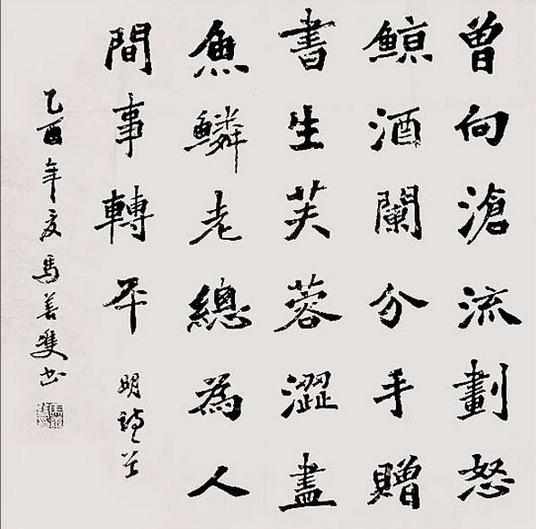 曾向滄流劃怒
鯨酒闌分手贈
書生芙蓉澀盡
魚鱗老總為人
間事轉平 明詩一首
乙酉年夏馬善雙书